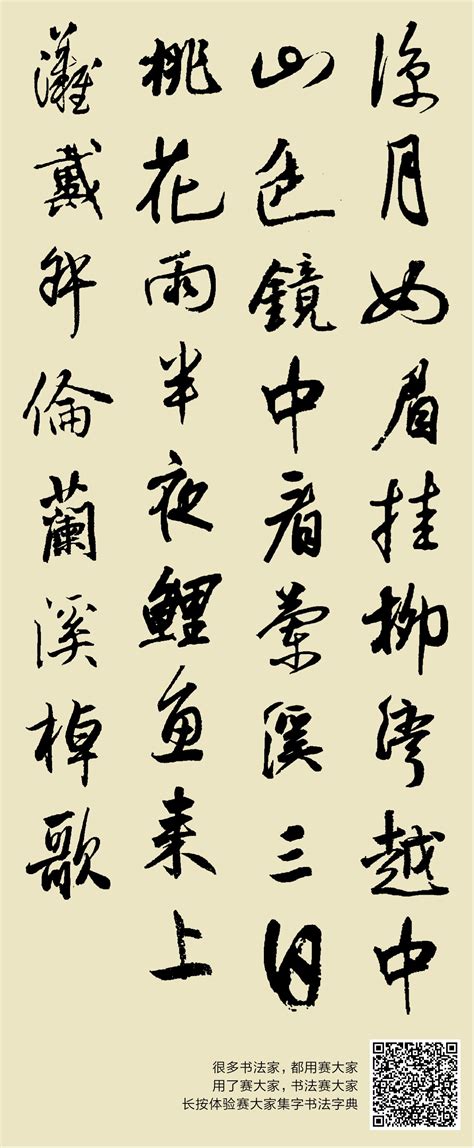 涼月如眉挂柳灣越中
山色鏡中看蘭溪三日
桃花雨半夜鯉魚来上
灘戴叔倫蘭溪棹歌
很多书法家，都用赛大家
用了赛大家，书法赛大家
长按体验赛大家集字书法字典